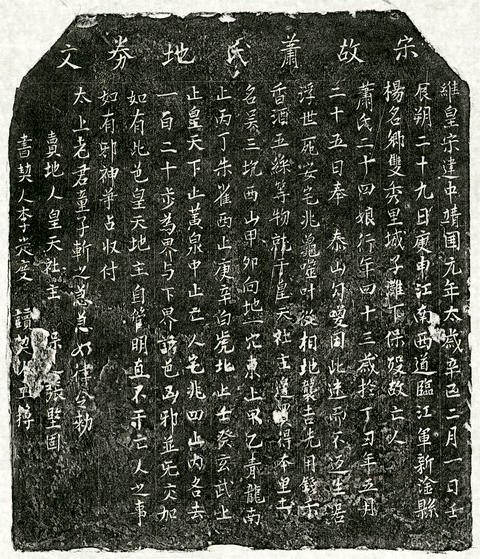 宋故蕭氏地券文
維皇宋建中靖國元年太歲辛巳二月一日壬
辰朔二十九日庚申江南西道臨江軍新淦縣
揚名鄉雙秀里城子灘下保歿故亡人
蕭氏二十四娘行年四十三歲於丁丑年五月
二十五日奉泰山勾喚因此迷而不返生居
浮世死安宅兆龜筮叶從相地襲吉先用錢
香酒五綵等物就于皇天社主邊買得本里土
名吳三坑西山甲卯向地一穴東止甲乙青龍南
止丙丁朱雀西止庚辛白虎北止壬癸玄武上
止皇天下止黃泉中止亡人宅兆四山內各去
一百二十步為界与下界諸邑凶邪並无交加
如有此邑皇天地主自管明直不干亡人之事
如有邪神爭占收付
太上老君童子斬之急急如律令勅
賣地人皇天社主 保人張堅固
書契人李定度